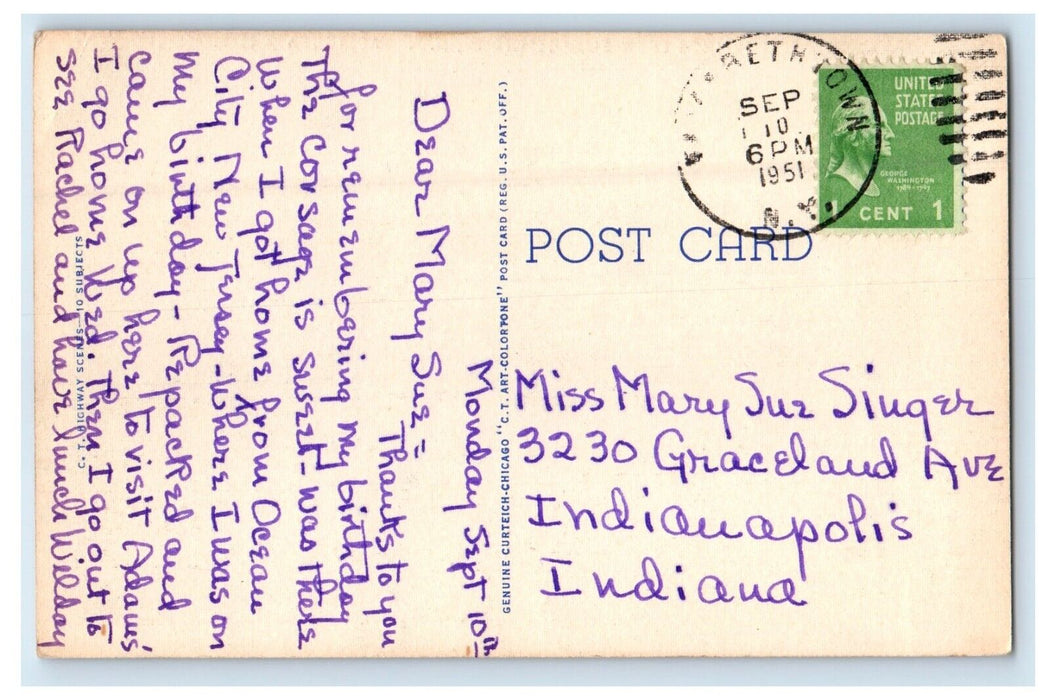 Monday Sept 10th
Dear Mary Sue =
Thanks to you
for remembering my birthday
The corsage is sweet - was there
when I got home from Ocean
City New Jersey - where I was on
my birthday - Repacked and
came on up here to visit Adams'
I go home Wed. then I go out to
see Rachel and have lunch Wedday
C. T. HIGHWAY SCENES—10 SUBJECTS
GENUINE CURTEICH-CHICAGO "C. T. ART-COLORTONE" POST CARD (REG. U. S. PAT. OFF.)
POST CARD
SEP
10
6 PM
1951
N.Y.
UNITED
STATES
POSTAGE
GEORGE
WASHINGTON
1789-1797
1 CENT 1
Miss Mary Sue Singer
3230 Graceland Ave
Indianapolis
Indiana